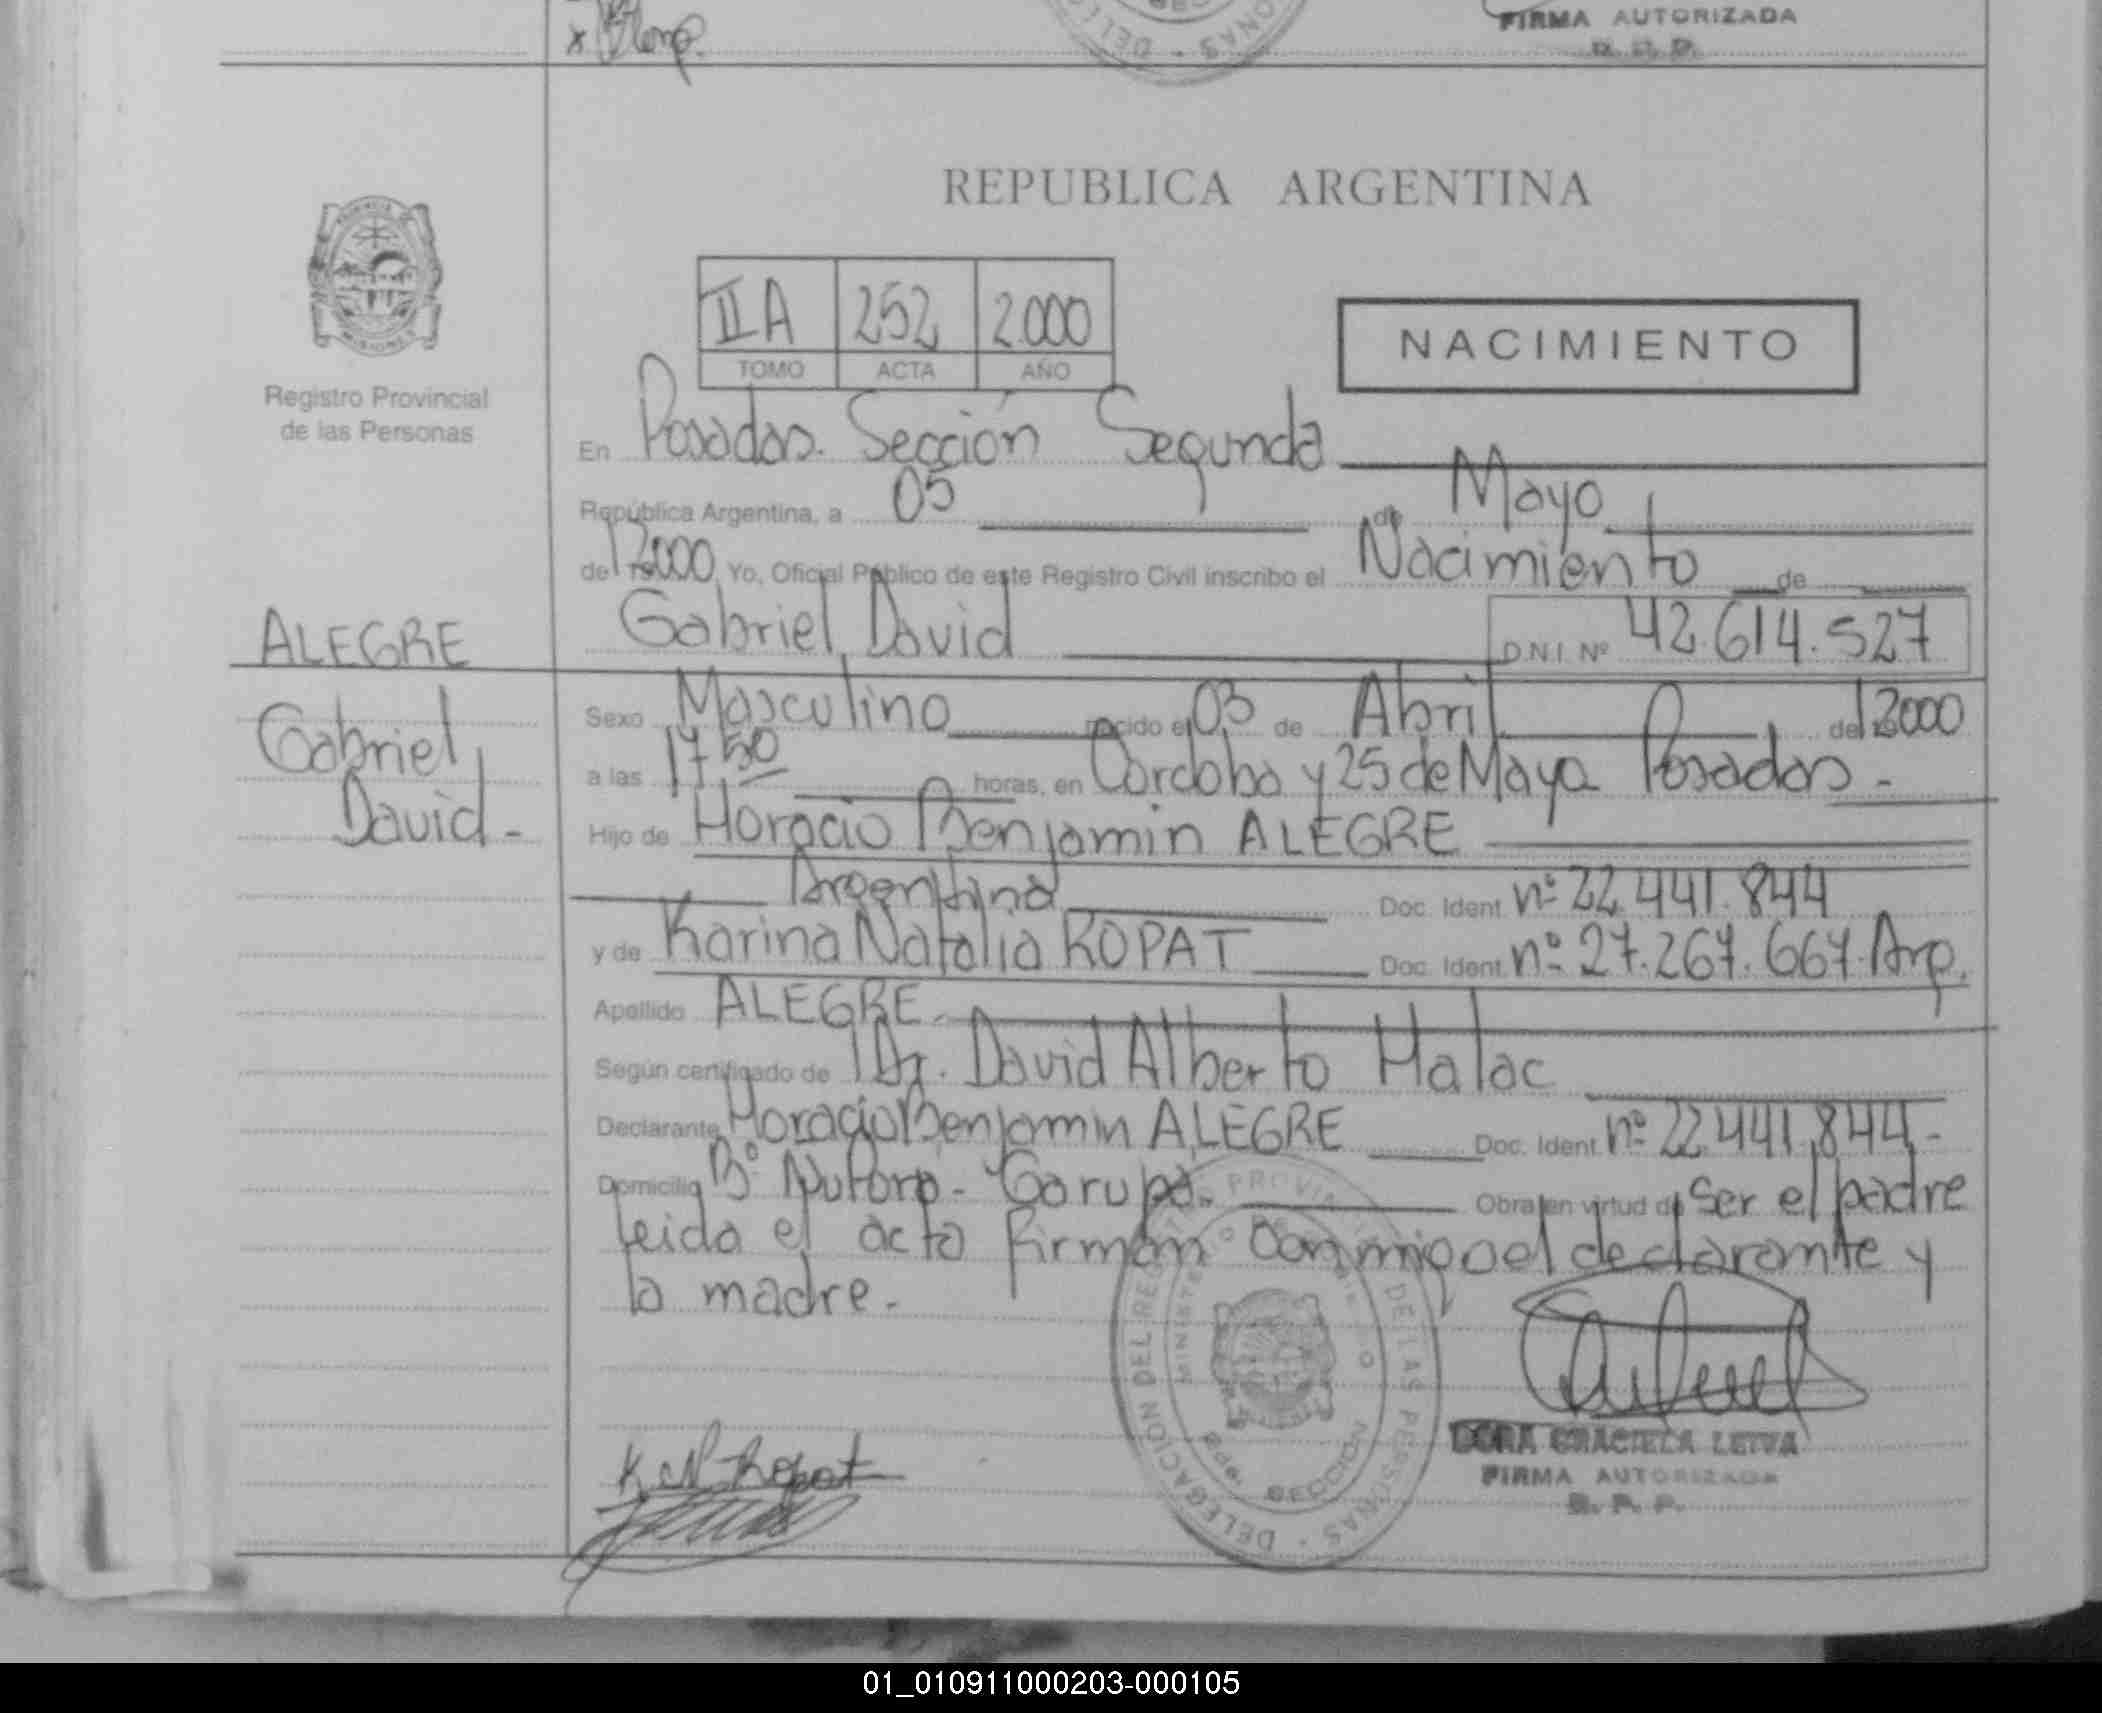 FIRMA AUTORIZADA
REPUBLICA ARGENTINA
IIA 252 2.000
TOMO ACTA AÑO
NACIMIENTO
Registro Provincial
de las Personas
En Posadas. Sección Segunda
República Argentina, a 05 de Mayo
del 2000 Yo, Oficial Público de este Registro Civil inscribo el Nacimiento de
Gabriel David D.N.I. Nº 42.614.527
ALEGRE
Gabriel
David.-
Sexo Masculino nacido el 03 de Abril del 2000
a las 17 50 horas, en Cordoba y 25 de Mayo Posadas.-
Hijo de Horacio Benjamin ALEGRE
Argentina Doc. Ident. nº 22.441.844
y de Karina Natalia ROPAT Doc. Ident. nº 27.267.667. Arg.
Apellido ALEGRE.
Según certificado de Dr. David Alberto Halac
Declarante Horacio Benjamin ALEGRE Doc. Ident. nº 22.441.844.-
Domicilio Bº Garupá. Obra en virtud de ser el padre
leida el acta firman conmigo el declarante y
la madre.-
DELEGACION DEL REGISTRO PROVINCIAL DE LAS PERSONAS
SECCION
K. N. Ropat
DORA GRACIELA LEIVA
FIRMA AUTORIZADA
R. P. P.
01_010911000203-000105